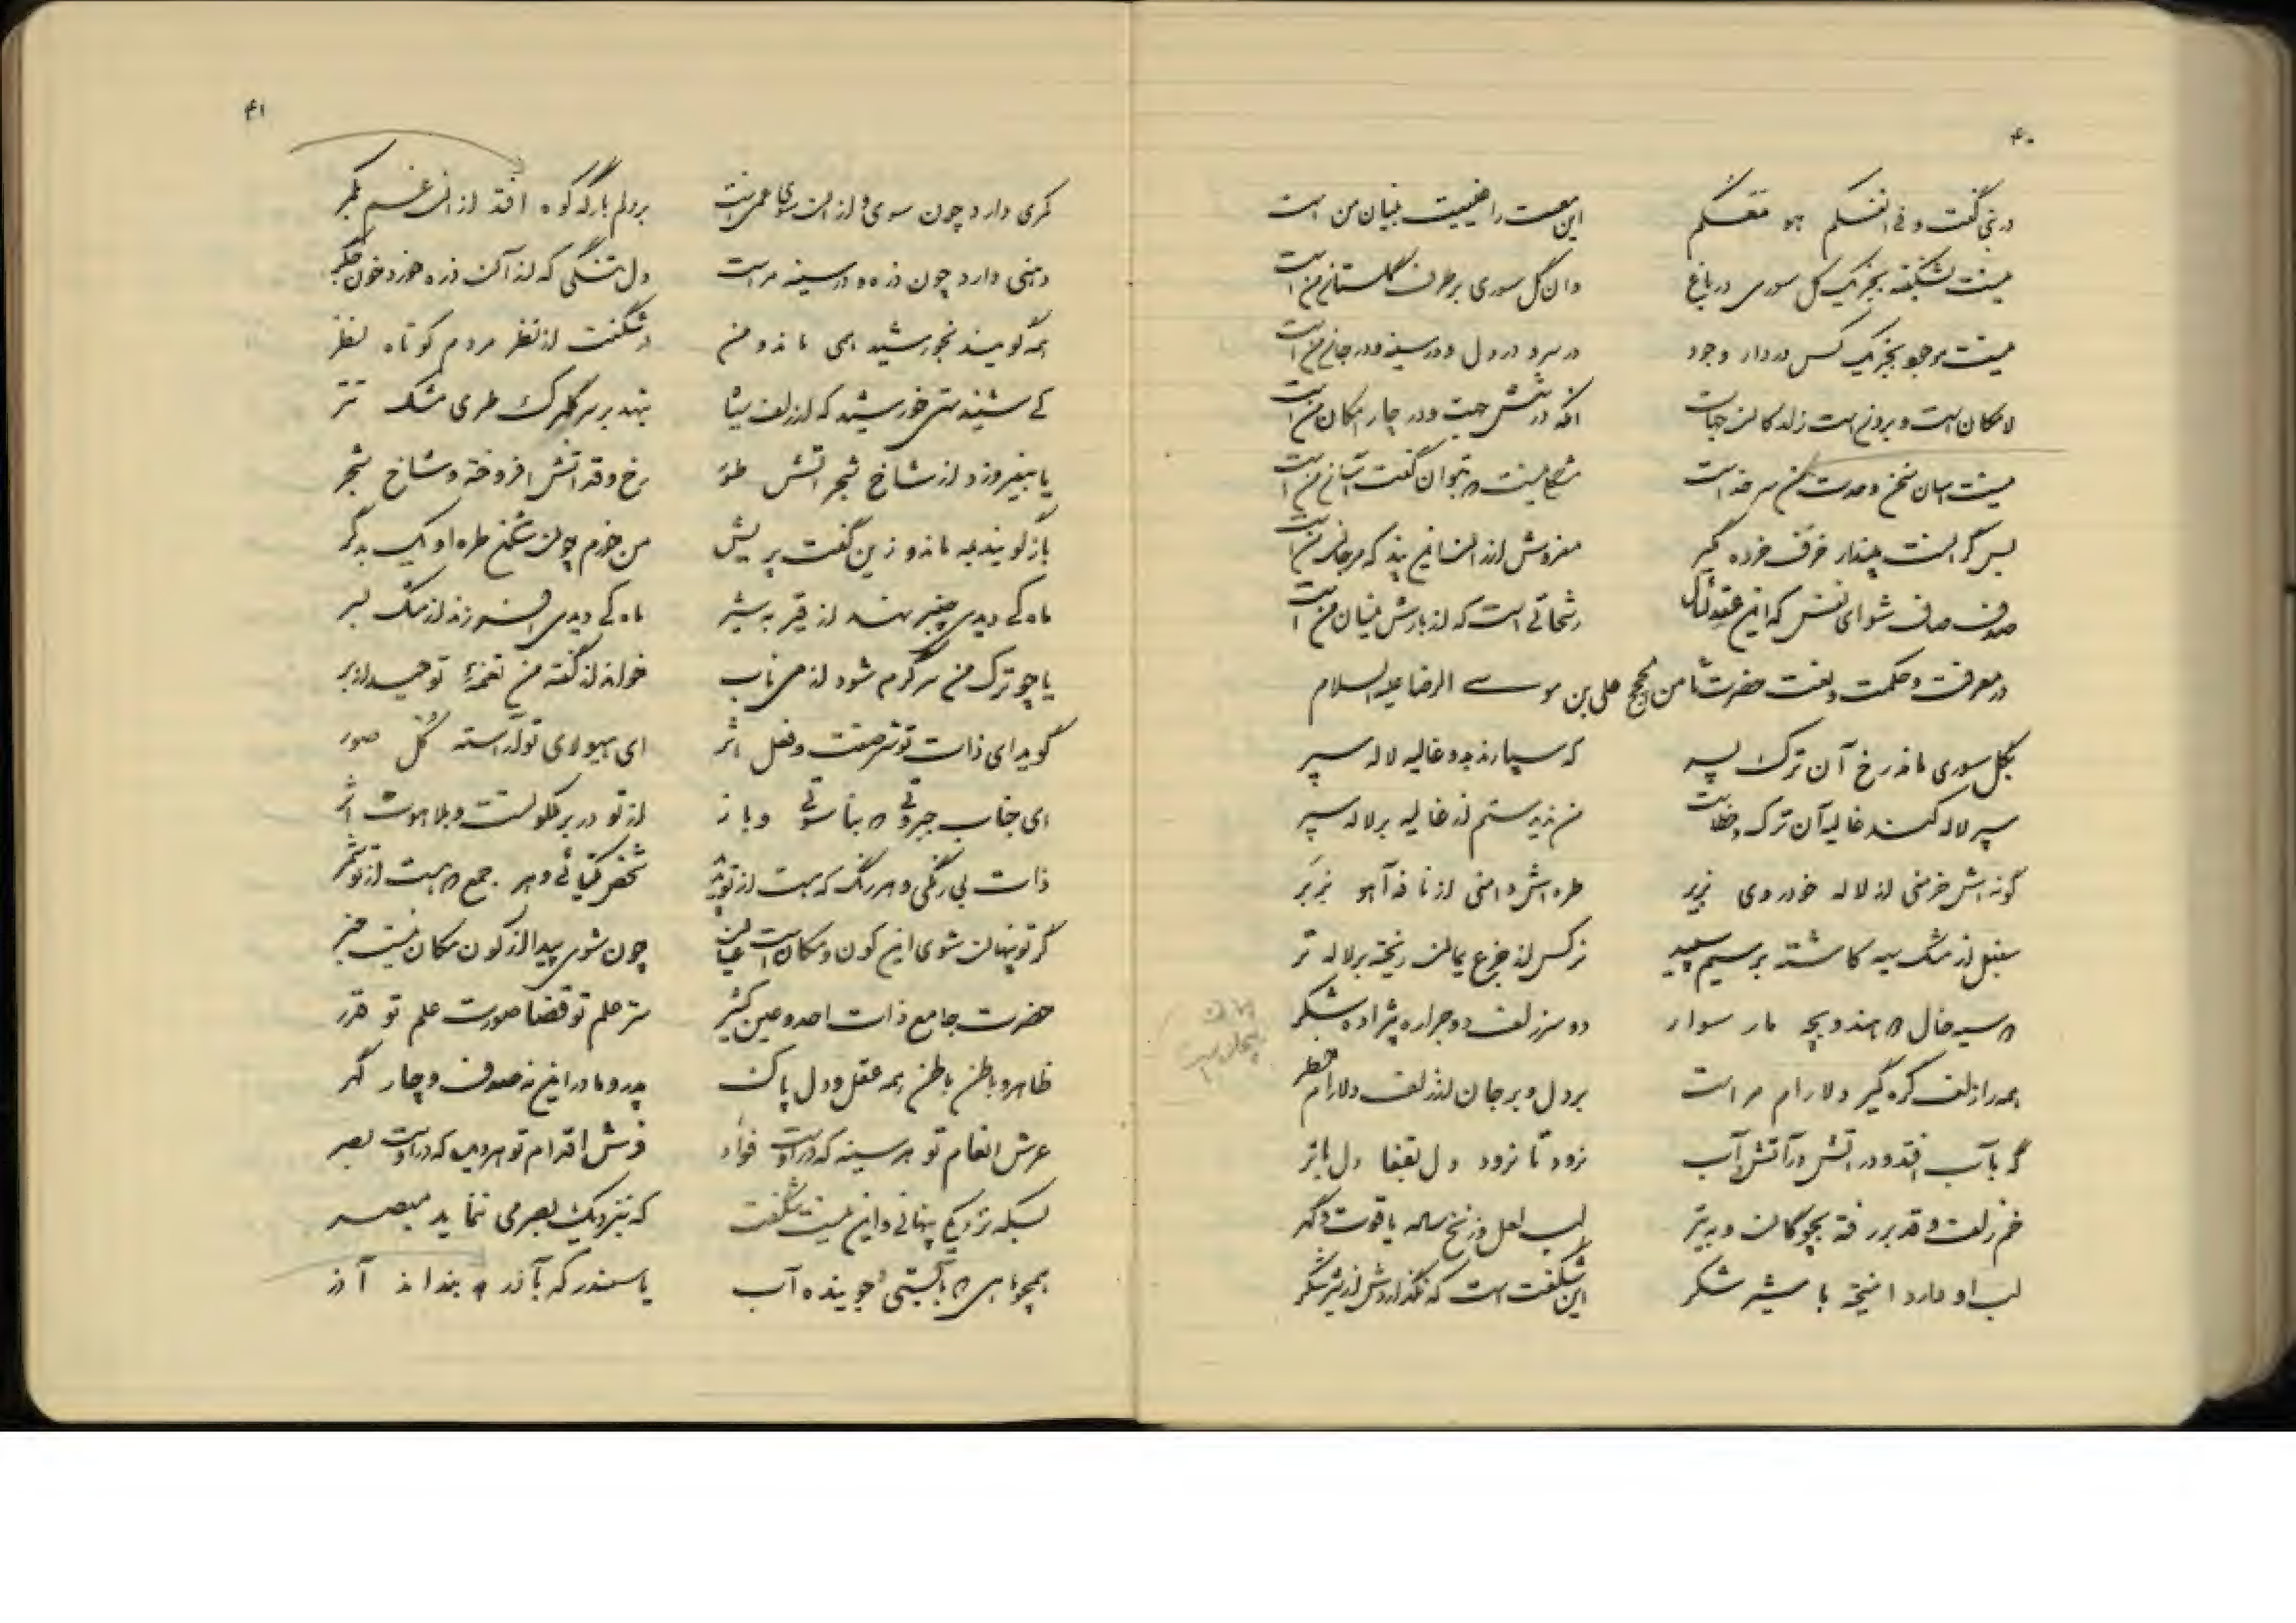 ۴۰
در نبی گفت و فی انفسکم هو معکم این معیت را خمیت بنیان من است
نیست بشکفته بجز یک گل سوری در باغ وان گل سوری بر طرف گلستان من است
نیست موجود بجز یک کس در دار وجود در سر و در دل و در سینه و در جان من است
لامکان است و برونی است ز امکان جهات آنکه در شش جهت و در چار ارکان من است
نیست سخن وحدت من سر خداست نیست بتوان گفت من است
بس گرانست پندار خزف خرده مگیر مفروش ارزان این پند که مرجان من است
صدف صاف شو ای نفس که این رشحاتی است که از بارش نیسان من است
در معرفت و حکمت و نعت حضرت ثامن الحجج علی بن موسی الرضا علیه السلام
بگل سوری ماند رخ آن ترک پسر که سپارند بدو غالیه لاله سپر
سپر لاله کند غالیه آن ترک و خطاست من ندیدستم از غالیه بر لاله سپر
گونه اش خرمنی از لاله خودروی بزیر طره اش دامنی از نافه آهو بزبر
سنبل از مشک سیه کاشته بر سیم سپید نرگس از جزع یمان ریخته بر لاله تر
سیه خال هندو بچه مار سوار دو سر زلف دو جراره شکر
همه را زلف گره گیر دلارام مراست بر دل و بر جان از زلف دلارام خطر
گر بآب افتد و در آتش در آتش و آب نرود تا نرود دل بقفا دل باثر
خم زلف و قد بر رفته بچوگان و به تیر لب لعل و زنخ ساده بیاقوت و گهر
لب او دارد آمیخته با شیر شکر این شگفت است که نگدازدش از شیر شکر
۴۱
کمری دارد چون موی و از ان موی میانست بر دلم بار که کوه افتد از ان غم بکمر
دهنی دارد چون ذره و در سینه مراست دل تنگی که از آن ذره خورد خون جگر
همه گویند بخورشید همی ماند و من در شگفت از نظر مردم کوتاه نظر
کی شنیدستی خورشید که از زلف سیاه بنهد بر سر گلبرگ طری مشک تتر
یا بیفروزد از شاخ شجر آتش طور رخ و قد آتش افروخته و شاخ شجر
باز گویند بمه ماند و زین گفت پریش من خورم چون شکنج طره او یک بدگر
ماه کی دیدی چنبر نهد از قیر به شیر ماه کی دیدی افسر زند از مشک بسر
یا چو ترک من سرگرم شود از می ناب خواند از گفته من نغمه توحید از بر
گوید ای ذات تو سر صفت و فعل اثر ای هیولای تو آراسته کل صور
ای جناب جبروتی بناسوتی و باز از تو در بر ملکوتست و بلاهوت اثر
ذات بی رنگی و هر رنگ که هست از تو پدید شخص یکتائی و هر جمع هست از تو
گر تو پنهان شوی این کون و مکان است عیان چون شوی پیدا از کون و مکان نیست خبر
حضرت جامع ذات احد و عین کثیر سر علم تو قضا صورت علم تو قدر
ظاهر و باطن باطن همه عقل و دل پاک پدر و مادر این نه صدف و چار گهر
عرش انعام تو هر سینه که در اوست فؤاد فرش اقدام تو هر دیده که در اوست بصر
بسکه نزدیکی پنهانی و این نیست شگفت که بنزدیک بصر می ننماید مبصر
همچو ماهی بآبستی جوینده آب یا سمندر که بآذر و بنداند آذر